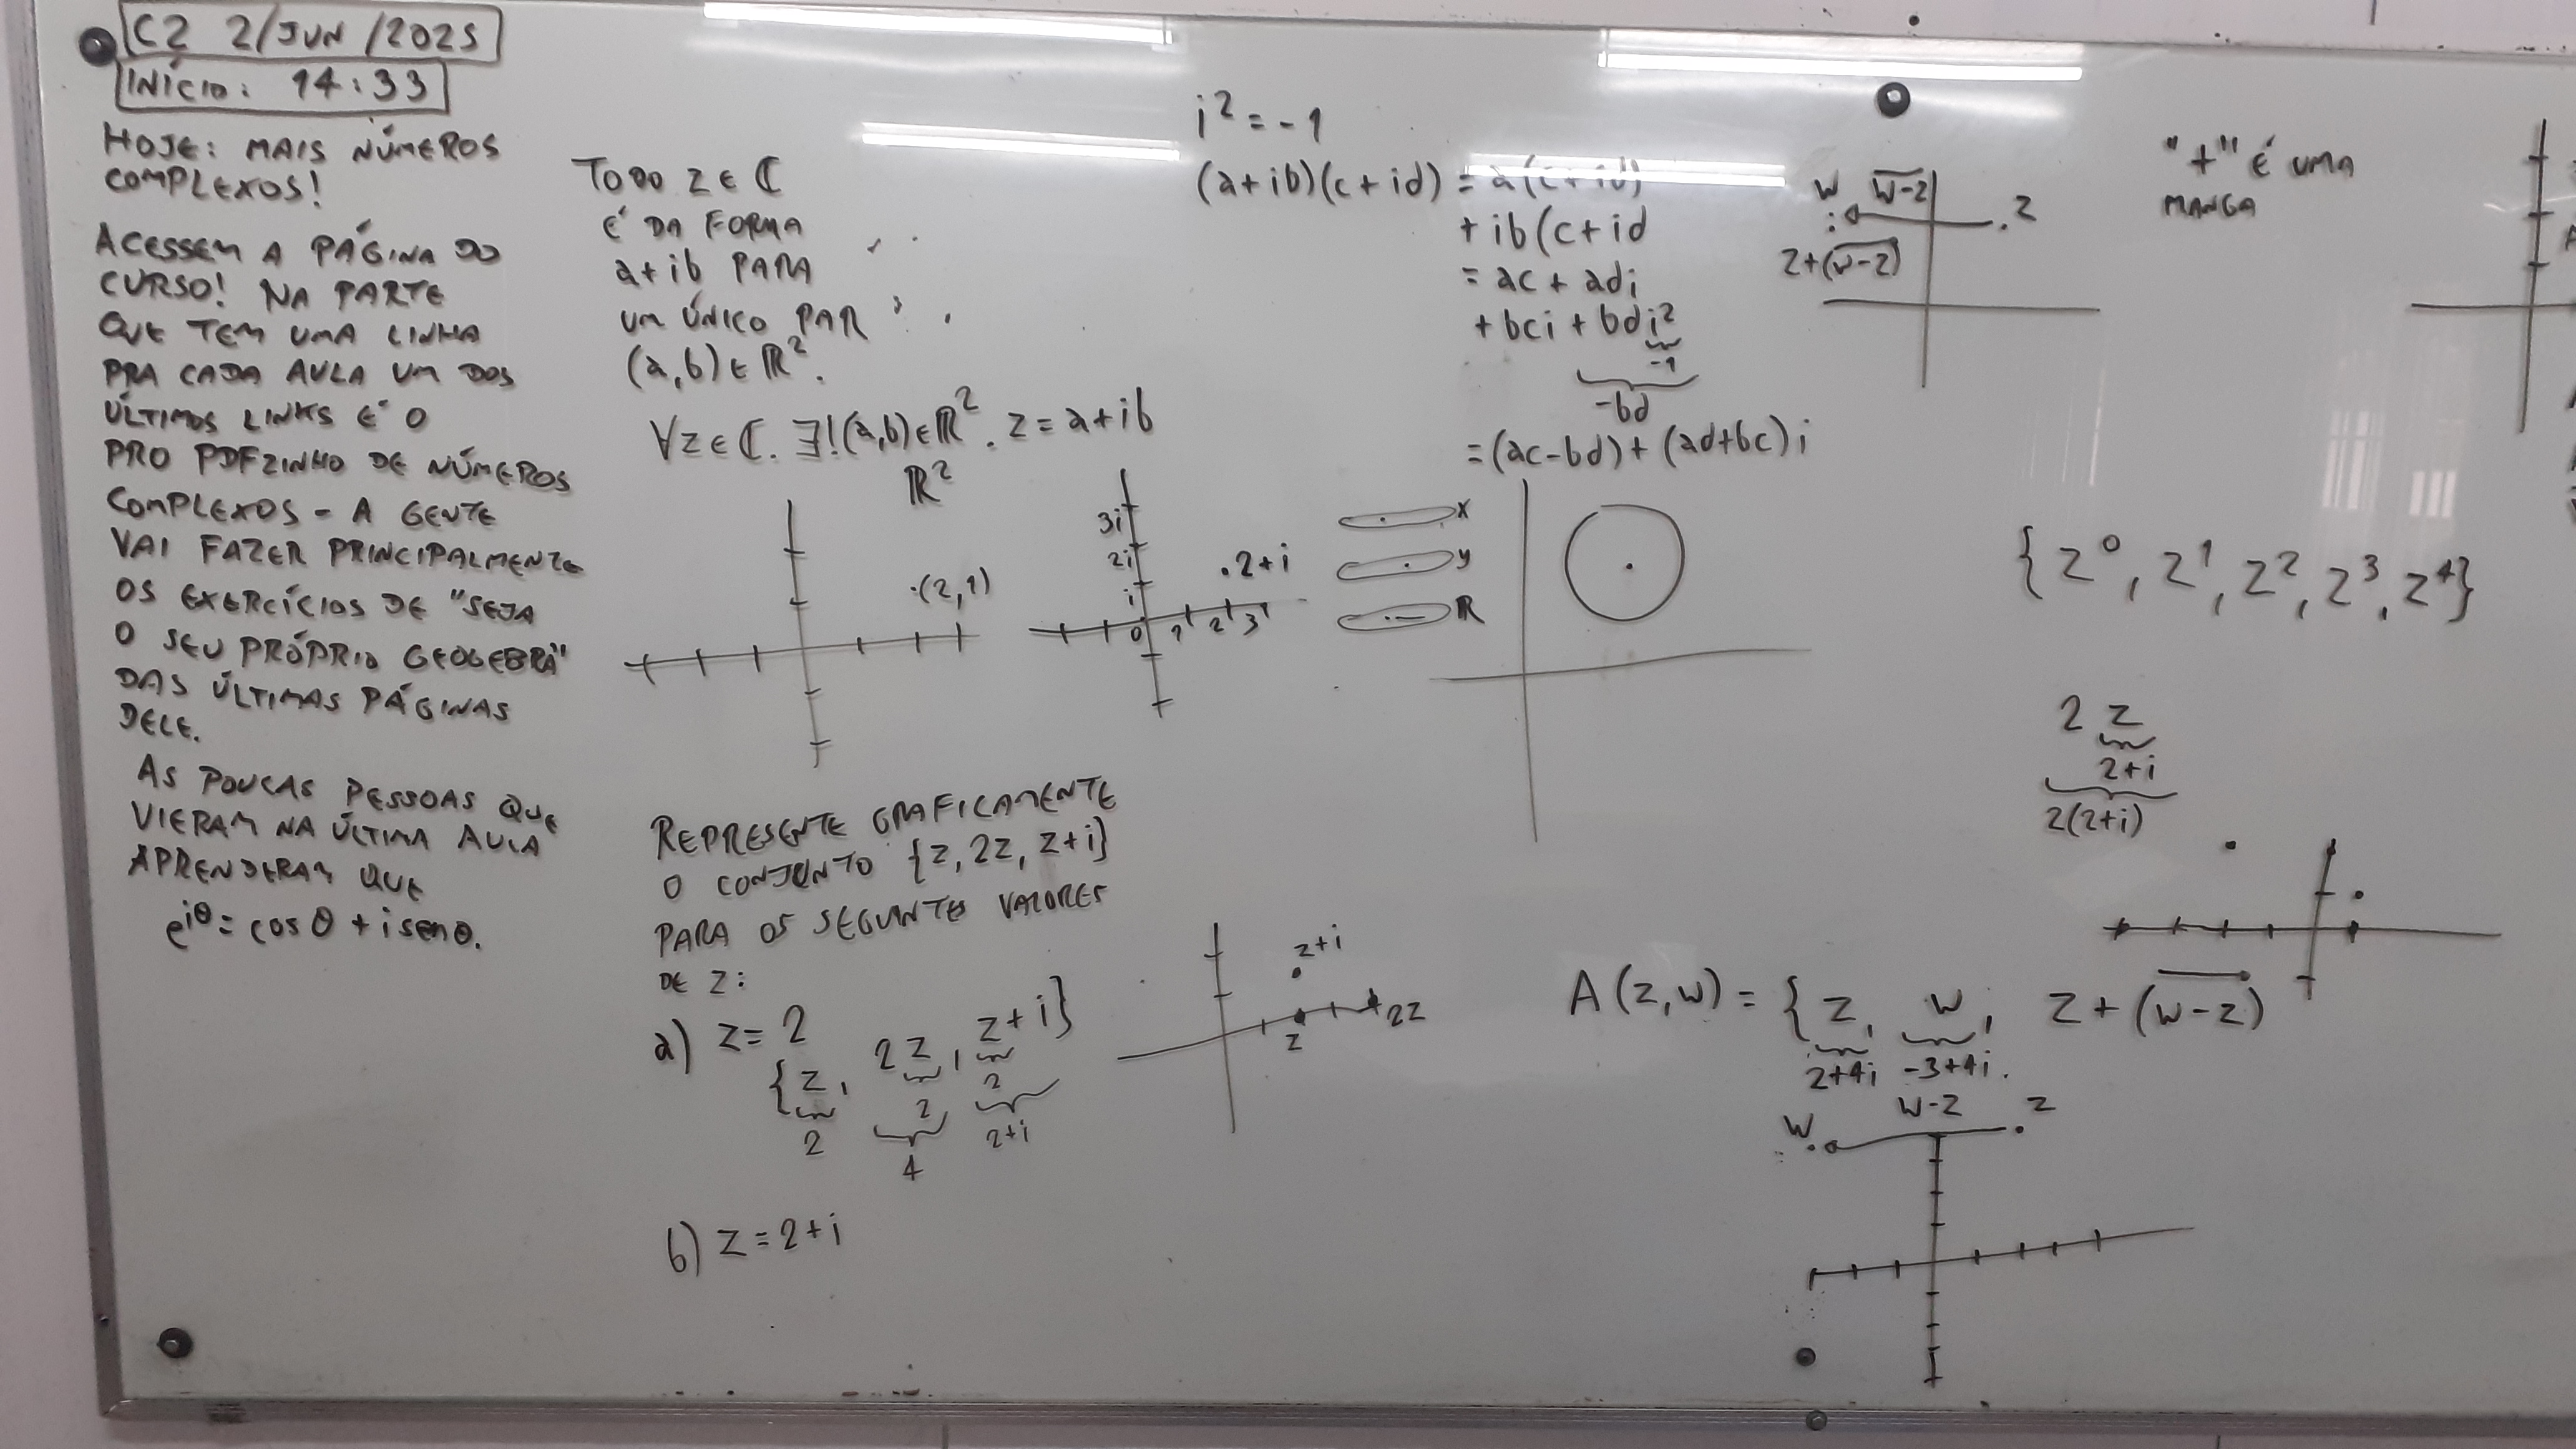 C2 2/JUN/2025
INÍCIO: 14:33
HOJE: MAIS NÚMEROS
COMPLEXOS!
ACESSEM A PÁGINA DO
CURSO! NA PARTE
QUE TEM UMA LINHA
PRA CADA AULA UM DOS
ÚLTIMOS LINKS É O
PRO PDFZINHO DE NÚMEROS
COMPLEXOS - A GENTE
VAI FAZER PRINCIPALMENTE
OS EXERCÍCIOS DE "SEJA
O SEU PRÓPRIO GEOGEBRA"
DAS ÚLTIMAS PÁGINAS
DELE.
AS POUCAS PESSOAS QUE
VIERAM NA ÚLTIMA AULA
APRENDERAM QUE
e^{iθ} = cos θ + i sen θ.
TODO z ∈ ℂ
É DA FORMA
a+ib PARA
UM ÚNICO PAR
(a,b) ∈ ℝ².
∀z∈ℂ. ∃!(a,b)∈ℝ². z = a+ib
ℝ²
(2,1)
3i
2i
i
2+i
0 1 2 3
x
y
R
REPRESENTE GRAFICAMENTE
O CONJUNTO {z, 2z, z+i}
PARA OS SEGUINTES VALORES
DE z:
a) z = 2
{z, 2z, z+i}
2 2 2
4 2+i
z+i
z 2z
b) z = 2+i
i² = -1
(a+ib)(c+id) = a(c+id)
+ ib(c+id
= ac + adi
+ bci + bdi²
-1
-bd
= (ac-bd) + (ad+bc)i
w w-z z
z+(w-z)
"+" É UMA
MANGA
{z⁰, z¹, z², z³, z⁴}
2 z
2+i
2(2+i)
A(z,w) = {z, w, z+(w-z)
2+4i -3+4i.
w w-z z